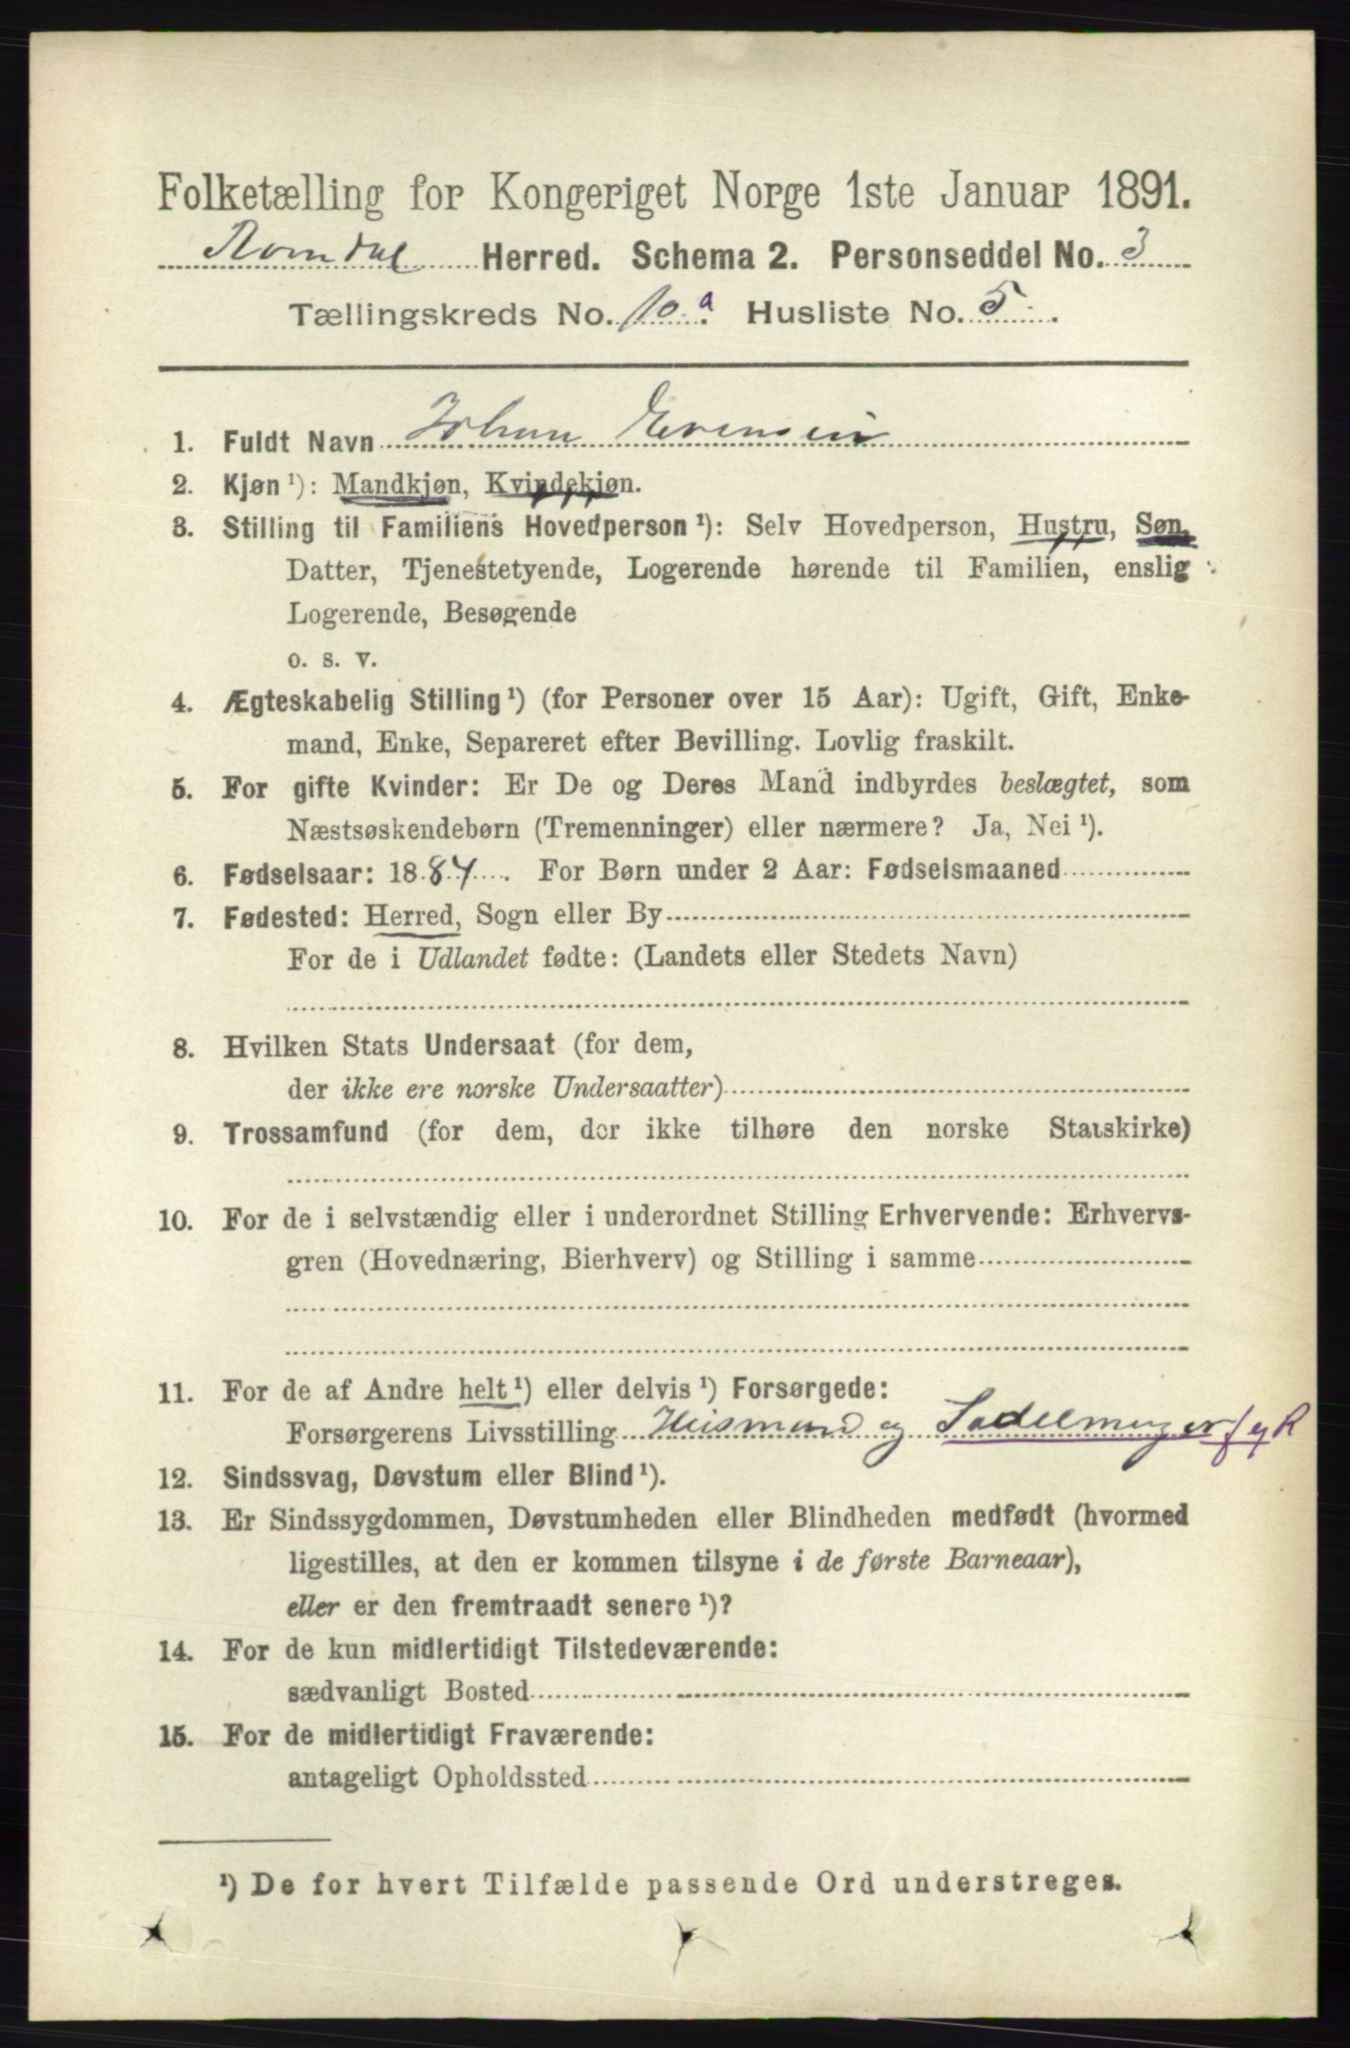 Folketælling for Kongeriget Norge 1ste Januar 1891.
Romdal Herred. Schema 2. Personseddel No. 3
Tællingskreds No. 10 a. Husliste No. 5.
1. Fuldt Navn Johan Evensen
2. Kjøn ¹): Mandkjøn, Kvindekjøn.
3. Stilling til Familiens Hovedperson ¹): Selv Hovedperson, Hustru, Søn,
Datter, Tjenestetyende, Logerende hørende til Familien, enslig
Logerende, Besøgende
o. s. v.
4. Ægteskabelig Stilling ¹) (for Personer over 15 Aar): Ugift, Gift, Enke-
mand, Enke, Separeret efter Bevilling. Lovlig fraskilt.
5. For gifte Kvinder: Er De og Deres Mand indbyrdes beslægtet, som
Næstsøskendebørn (Tremenninger) eller nærmere? Ja, Nei ¹).
6. Fødselsaar: 1884. For Børn under 2 Aar: Fødselsmaaned
7. Fødested: Herred, Sogn eller By
For de i Udlandet fødte: (Landets eller Stedets Navn)
8. Hvilken Stats Undersaat (for dem,
der ikke ere norske Undersaatter)
9. Trossamfund (for dem, der ikke tilhøre den norske Statskirke)
10. For de i selvstændig eller i underordnet Stilling Erhvervende: Erhvervs-
gren (Hovednæring, Bierhverv) og Stilling i samme
11. For de af Andre helt ¹) eller delvis ¹) Forsørgede:
Forsørgerens Livsstilling Husmand og Sadelmager
12. Sindssvag, Døvstum eller Blind ¹).
13. Er Sindssygdommen, Døvstumheden eller Blindheden medfødt (hvormed
ligestilles, at den er kommen tilsyne i de første Barneaar),
eller er den fremtraadt senere ¹)?
14. For de kun midlertidigt Tilstedeværende:
sædvanligt Bosted
15. For de midlertidigt Fraværende:
antageligt Opholdssted
¹) De for hvert Tilfælde passende Ord understreges.